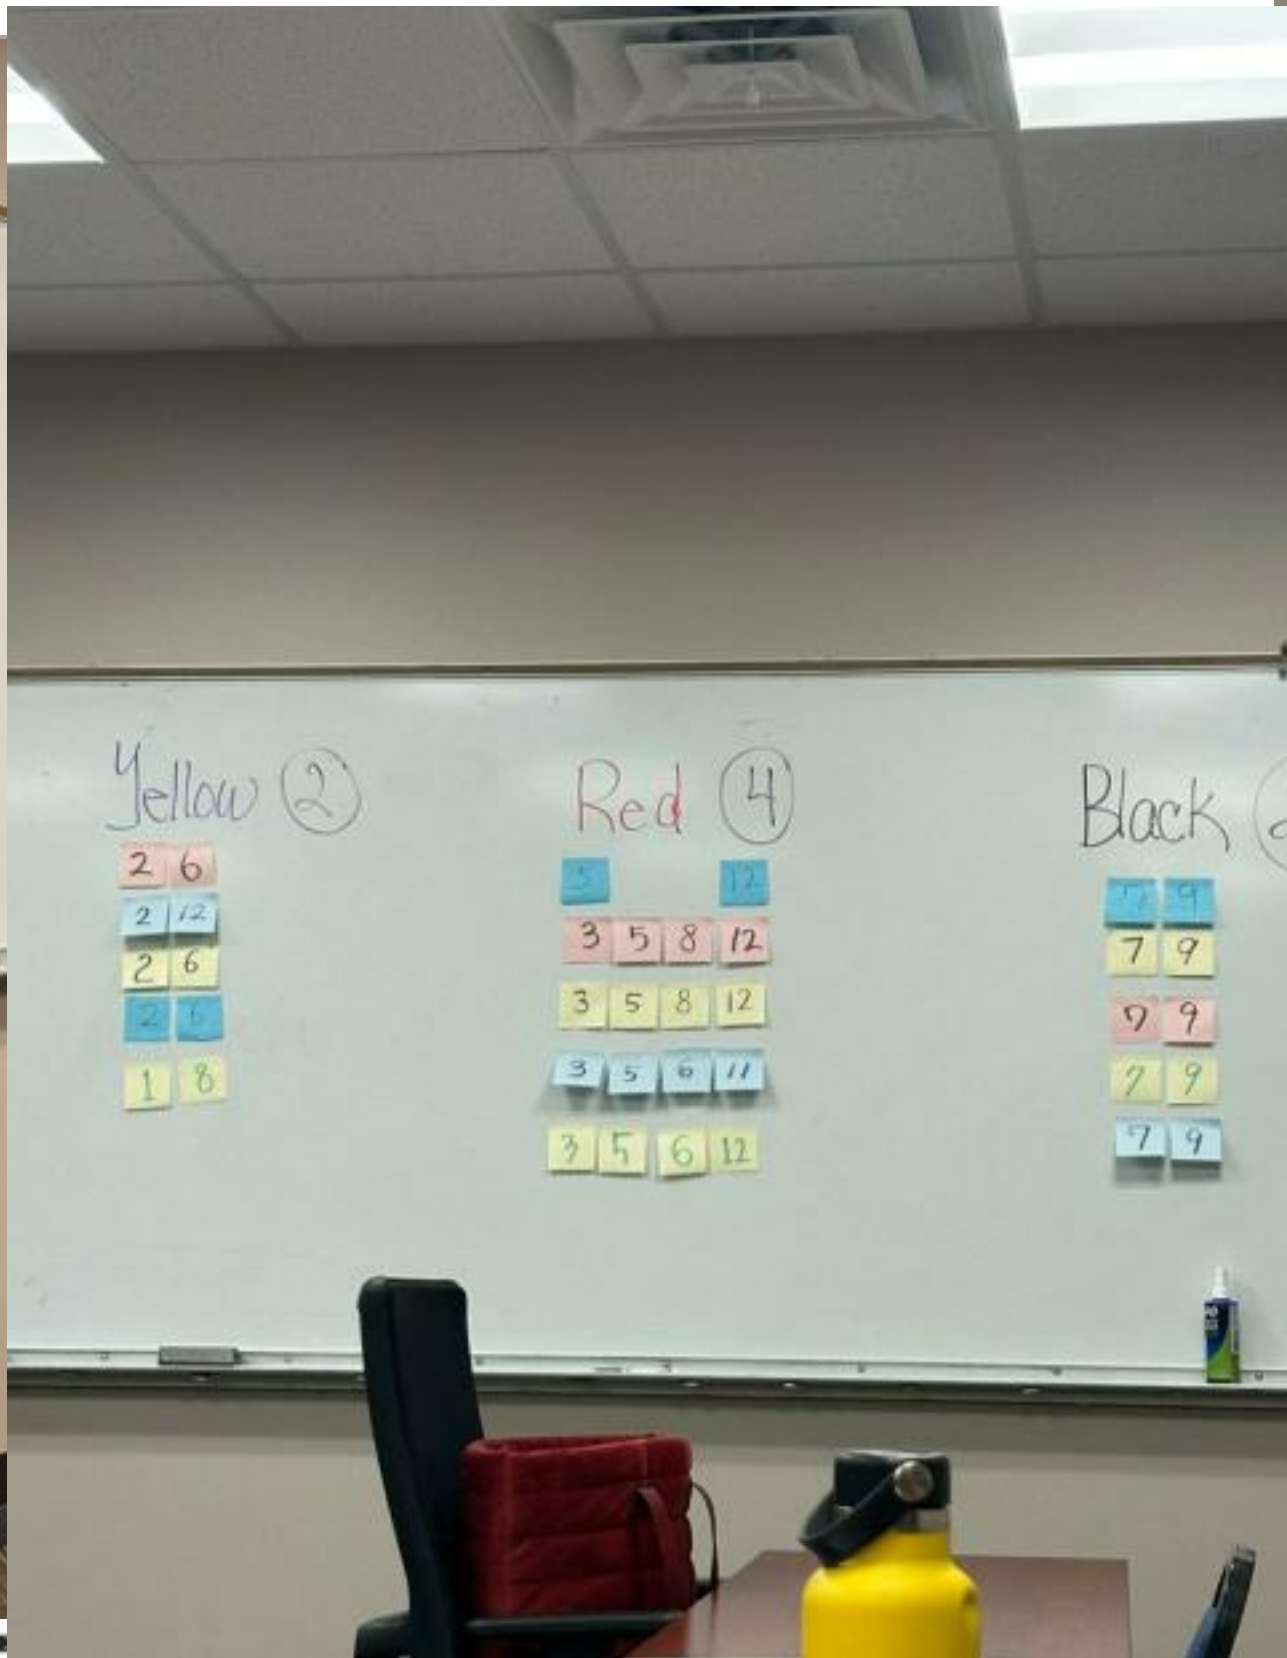 Yellow 2
2 6
2 12
2 6
2 6
1 8
Red 4
5 12
3 5 8 12
3 5 8 12
3 5 6 11
3 5 6 12
Black
7 9
7 9
7 9
7 9
7 9